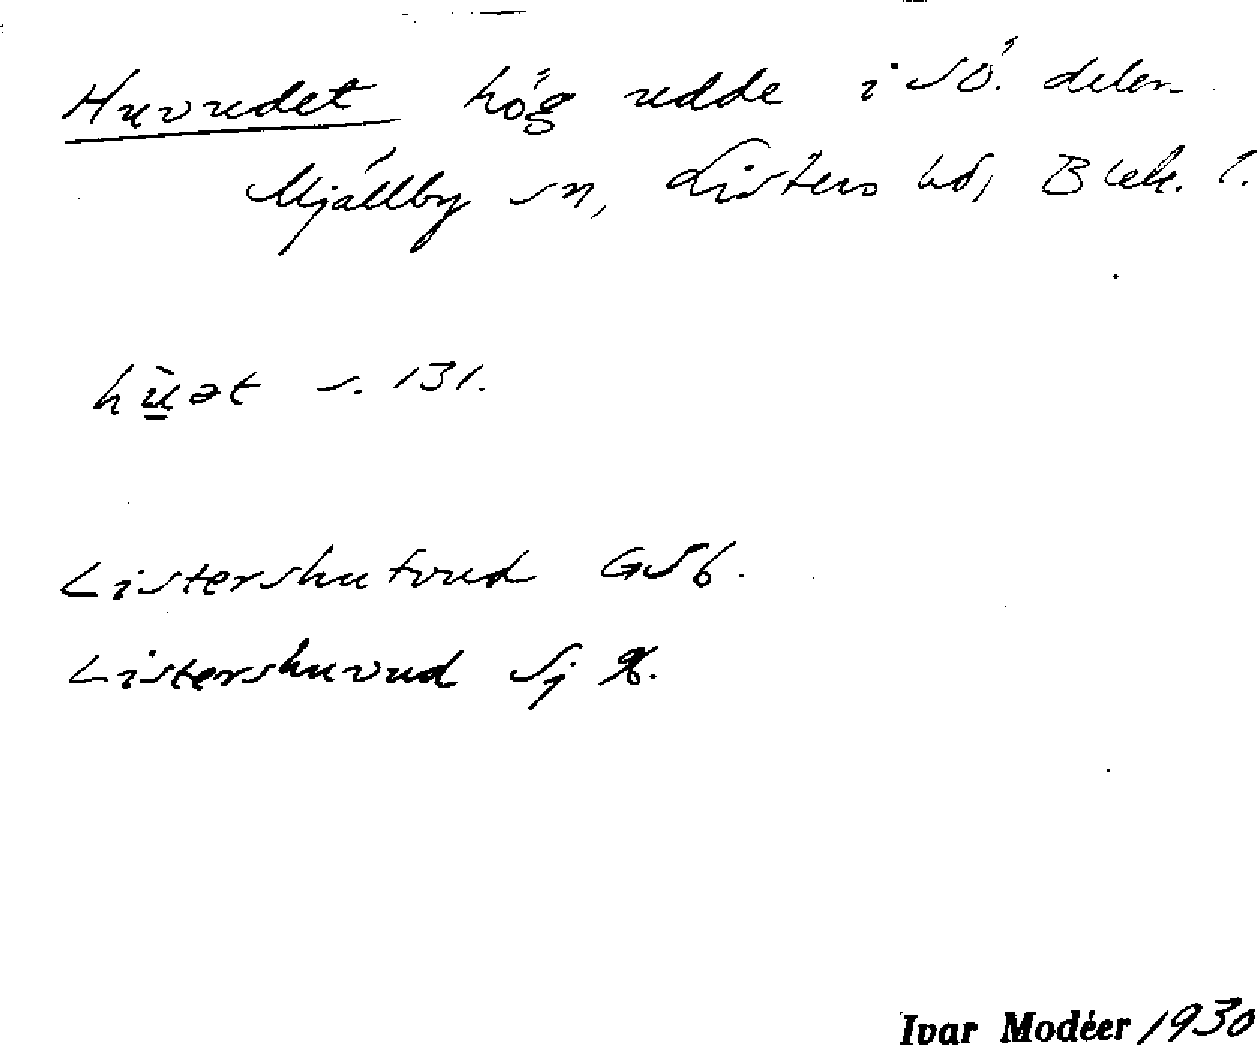 Huvudet hög udde i SÖ. delen
Mjällby sn, Listers hd, Blek. l.
hùət s. 131.
Listershufvud GSb.
Listershuvud Sj k.
Ivar Modéer 1930